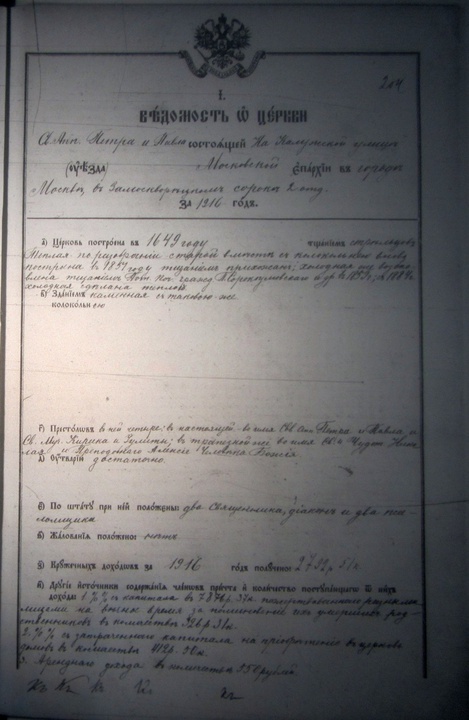 204
I.
Вѣдомость ѡ церкви
Св. Апп. Петра и Павла состоящей На Калужской улицѣ
(оуѣзда) Московской епархіи въ городѣ
Москвѣ, въ Замоскворѣцкомъ сорокѣ 2 отд.
за 1916 годъ.
а) Церковь построена въ 1649 году тщаніемъ стрѣльцовъ
Теплая по разобраніи старой вмѣстѣ съ колокольнею вновь
построена въ году тщаніемъ прихожанъ; холодная
холодная сдѣлана теплою
в) Зданіемъ каменная съ таковою же
колокольнею
г) Престоловъ въ ней четыре: въ настоящей во имя Св. Апп. Петра и Павла и
Св. Муч. Кирика и Іулиты; въ трапезной во имя Св. Чудот. Нико
лая и Преподобнаго Алексія Человѣка Божія
д) Оутварію достаточно
е) По штату при ней положены: два священника, діаконъ и два пса
ломщика
ѕ) Жалованія положено: нѣтъ
з) Кружечныхъ доходовъ за 1916 годъ получено: 2732 р. 51 к.
и) Другіе источники содержанія членовъ причта и количество поступившаго ѿ нихъ
дохода: % съ капитала въ 7878 р. 37 к. пожертвованнаго разными
лицами на вѣчное время за поминовеніе ихъ умершихъ род
ственниковъ въ количествѣ 326 р. 31 к.
2. % съ запаснаго капитала на пріобрѣтеніе въ церковь
въ количествѣ 412 р. 50 к.
3. Аренднаго дохода въ количествѣ 950 рублей